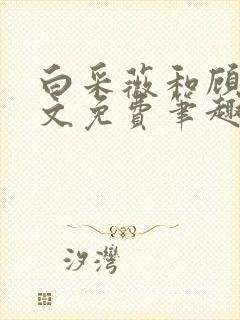 白采薇和顾
文免费笔趣
汐湾